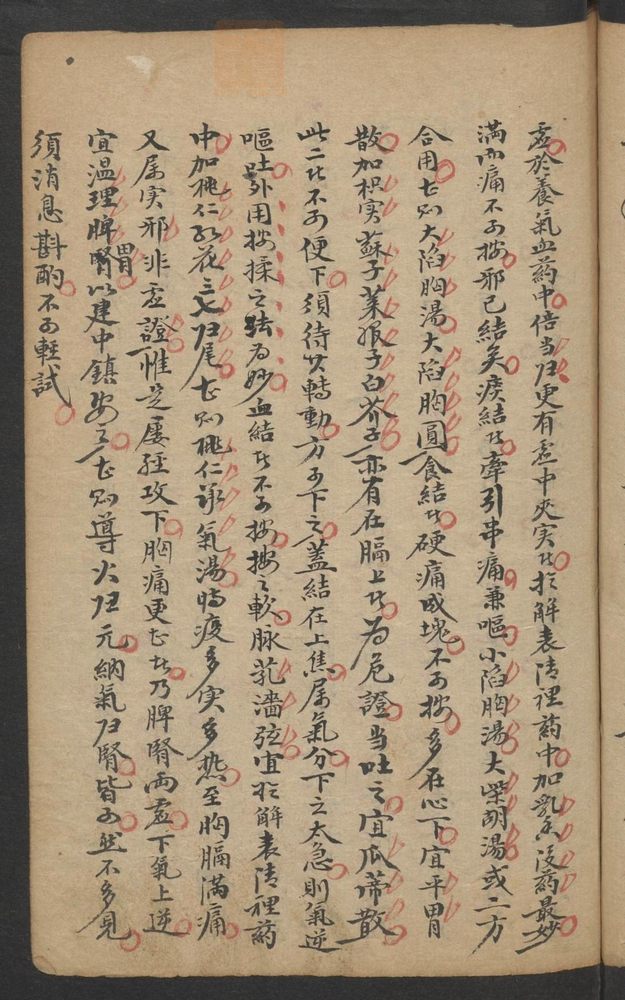 虚於養氣血药中倍当归更有虚中夹实者於解表清裡药中加乳香没药最妙
满而痛不可按邪已結矣痰結者牽引串痛兼嘔小陷胸湯大柴胡湯或二方
合用甚则大陷胸湯大陷胸圓食結者硬痛成塊不可按多在心下宜平胃
散加枳实蘇子莱菔子白芥子亦有在膈上者为危證当吐之宜瓜蒂散
此二者不可便下須待其轉動方可下之蓋結在上焦属氣分下之太急則氣逆
嘔吐外用按揉之法为妙血結者不可按按之軟脉芤濇弦宜於解表清裡药
中加桃仁红花三七归尾甚则桃仁承氣湯时疫多实多热至胸膈满痛
又属实邪非虚證惟是屡经攻下胸痛更甚者乃脾腎两虚下氣上逆
宜温理脾胃腎以建中鎮安之甚则導火归元納氣归腎皆可然不多見
須消息斟酌不可輕試